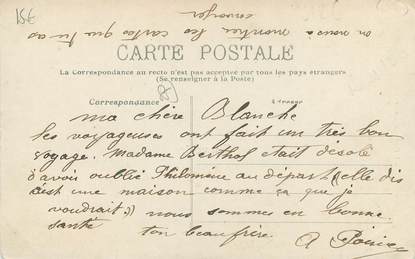 15€
on nous a montrer les cartes que tu as
envoyer
CARTE POSTALE
La Correspondance au recto n'est pas acceptée par tous les pays étrangers
(Se renseigner à la Poste)
Correspondance
ma chère Blanche
les voyageuses ont fait un très bon
voyage. Madame Berthol etait désolé
d'avoir oublié Philomène au départ (elle dis
c'est une maison comme ça que je
voudrait) nous sommes en bonne
santé ton beau frère. A